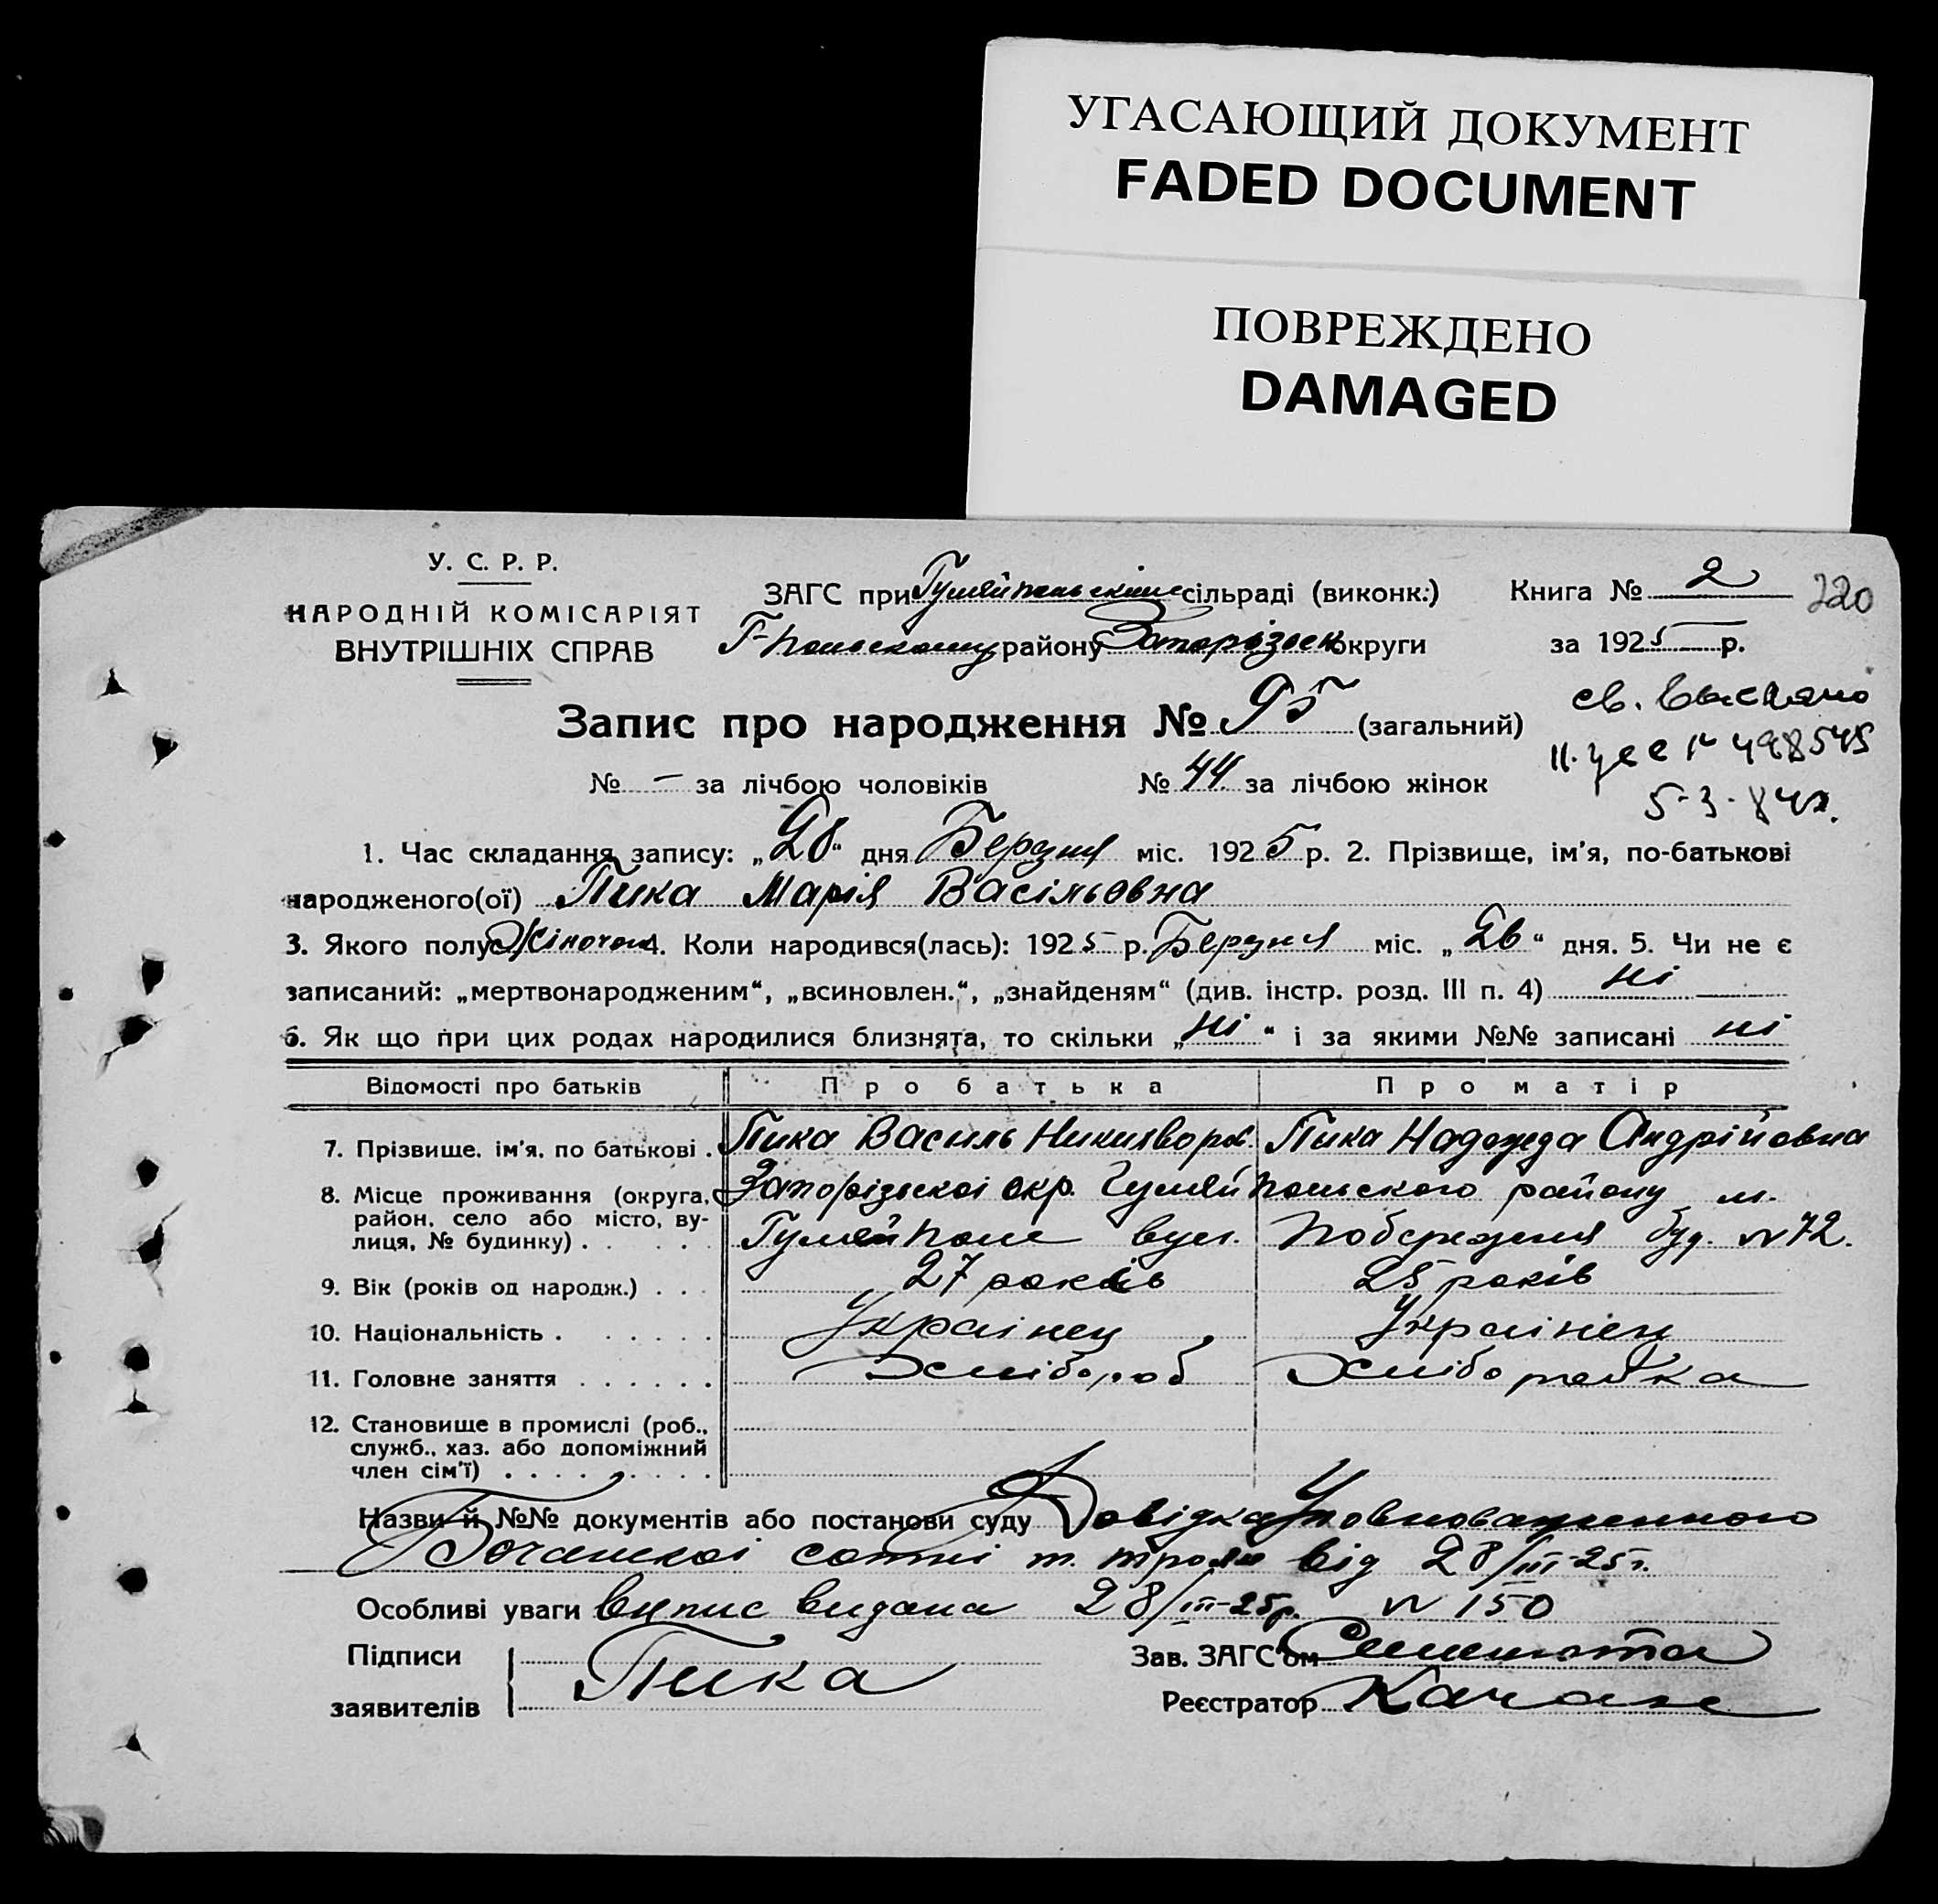 УГАСАЮЩИЙ ДОКУМЕНТ
FADED DOCUMENT
ПОВРЕЖДЕНО
DAMAGED
У. С. Р. Р.
НАРОДНІЙ КОМІСАРІЯТ
ВНУТРІШНІХ СПРАВ
ЗАГС при сільраді (виконк.)
Г-польскому району Запорізьск округи
Книга № 2
220
за 1925 р.
Запис про народження № 95 (загальний)
№ – за лічбою чоловіків № 44 за лічбою жінок
св. выслано
498545
1. Час складання запису: „28“ дня Березня міс. 1925 р. 2. Прізвище, ім’я, по-батькові
народженого(ої) Пика Марія Васільовна
3. Якого полу 4. Коли народився(лась): 1925 р. Березня міс. „26“ дня. 5. Чи не є
записаний: „мертвонародженим“, „всиновлен.“, „знайденям“ (див. інстр. розд. III п. 4) ні
6. Як що при цих родах народилися близнята, то скільки „ні“ і за якими №№ записані ні
Відомості про батьків Про батька Про матір
7. Прізвище, ім’я, по батькові . Пика Василь Пика Надежда Андрійовна
8. Місце проживання (округа, район, село або місто, вулиця, № будинку) . Запорізьскоі окр. Гуляйпольского району м.
Гуляйполе вул. Побережня буд. № 72.
9. Вік (років од народж.) . . . 27 років 25 років
10. Національність . Українец Українен
11. Головне заняття . . . . . . Хлібороб Хліборобка
12. Становище в промислі (роб., служб., хаз. або допоміжний член сім’ї)
Назви й №№ документів або постанови суду Довідка Уповноваженного
сотні т. від 28/III-25г.
Особливі уваги випис видана 28/III-25р. № 150
Підписи
заявителів
Пика
Зав. ЗАГС’ом
Реєстратор Качан